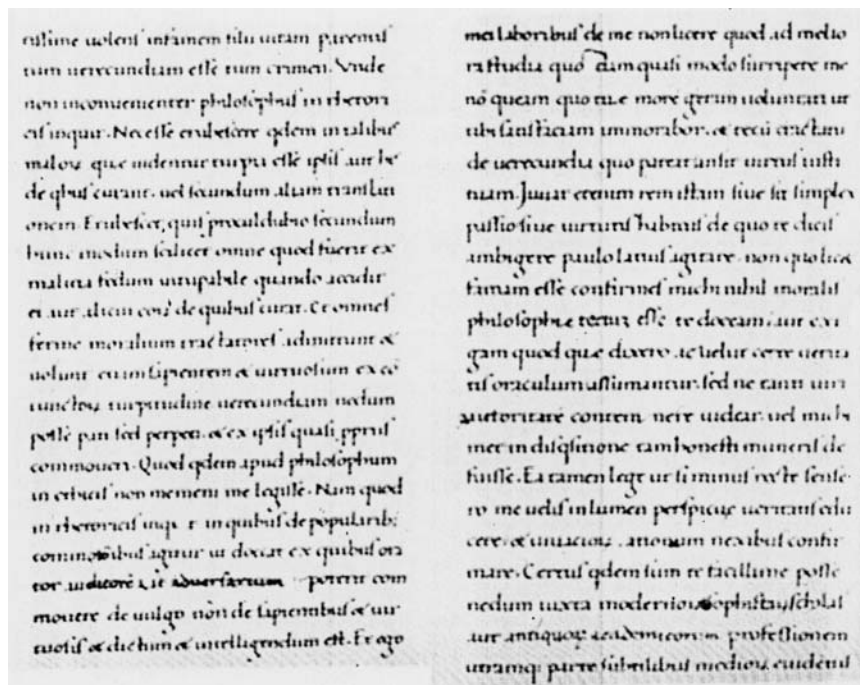 rissime uolens infamem filii uitam
tum uerecundiam esse tum crimen. Vnde
non inconuenienter philosophus in rhetori
cis inquit. Necesse erubescere qdem in talibus
maloꝝ que uidentur turpia esse ipsis aut his
de qbus curant. uel secundum aliam translati
onem. Erubescet, quis proculdubio secundum
hunc modum scilicet omne quod fuerit ex
malicia fedum uituꝑabile quando accidit
ei aut alicui eoꝝ de quibus curat. Et omnes
ferme moralium tractatores admittunt &
uolunt etiam sapientem & uirtuosum ex cō
iunctoꝝ turpitudine uerecundiam nedum
posse pati sed perpeti. & ex ipsis quasi ꝓpriis
commoueri. Quod qdem apud philosophum
in ethicis non memini me legisse. Nam quod
in rhetoricis inqt in quibus de popularib;
commotoibus agitur ut doceat ex quibus ora
tor auditorē & aduersarium poterit com
mouere de uulgo non de sapientibus & uir
tuosis & dictum & intelligendum est. Et ego
mei laboribus de me non licere quod ad melio
ra studia quo etiam quasi modo surripere me
nō queam quo tue more geram uoluntati ut
tibi satisfaciam immorabor. & tecū
de uerecundia quo uirtus iusti
tuam. Juuat etenim rem istam siue sit simplex
passio siue uirtutis habitus de quo te dicis
ambigere paulo latius agitare. non quo licet
famam esse confirmes michi nihil moralis
philosophie esse te doceam. aut exi
gam quod que dixero ac uelut certe uerita
tis oraculum assumantur. sed ne tanti uiri
autoritatē contem nere uidear. uel michi
met in disqsitione tam honesti muneris de
fuisse. Ea tamen lege ut si minus recte sense
ro me uelis in lumen perspicue ueritatis edu
cere. & uiuacioꝝ rationum nexibus confir
mare. Certus qdem sum te facillime posse
nedum iuxta modernioꝝ sophistaꝝ scholas
aut antiquoꝝ academicorum professionem
utramqꝫ partē subtilibus medioꝝ euidentiis